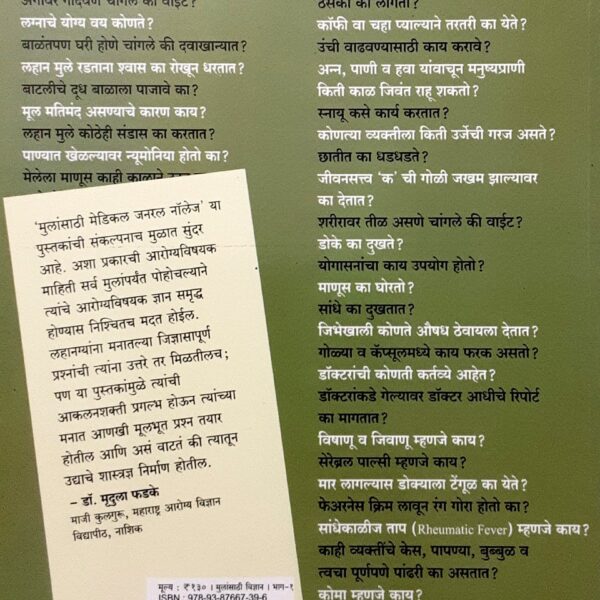 अंगावर गोंदवणे चांगले की वाईट?
लग्नाचे योग्य वय कोणते?
बाळंतपण घरी होणे चांगले की दवाखान्यात?
लहान मुले रडताना श्वास का रोखून धरतात?
बाटलीचे दूध बाळाला पाजावे का?
मूल मतिमंद असण्याचे कारण काय?
लहान मुले कोठेही संडास का करतात?
पाण्यात खेळल्यावर न्यूमोनिया होतो का?
मेलेला माणूस काही काळाने
'मुलांसाठी मेडिकल जनरल नॉलेज' या
पुस्तकांची संकल्पनाच मुळात सुंदर
आहे. अशा प्रकारची आरोग्यविषयक
माहिती सर्व मुलांपर्यंत पोहोचल्याने
त्यांचे आरोग्यविषयक ज्ञान समृद्ध
होण्यास निश्चितच मदत होईल.
लहानग्यांना मनातल्या जिज्ञासापूर्ण
प्रश्नांची त्यांना उत्तरे तर मिळतीलच;
पण या पुस्तकांमुळे त्यांची
आकलनशक्ती प्रगल्भ होऊन त्यांच्या
मनात आणखी मूलभूत प्रश्न तयार
होतील आणि असं वाटतं की त्यातून
उद्याचे शास्त्रज्ञ निर्माण होतील.
– डॉ. मृदुला फडके
माजी कुलगुरू, महाराष्ट्र आरोग्य विज्ञान
विद्यापीठ, नाशिक
मूल्य : ₹१३० । मुलांसाठी विज्ञान । भाग-१
ISBN : 978-93-87667-39-6
ठसका का लागतो?
कॉफी वा चहा प्याल्याने तरतरी का येते?
उंची वाढवण्यासाठी काय करावे?
अन्न, पाणी व हवा यांवाचून मनुष्यप्राणी
किती काळ जिवंत राहू शकतो?
स्नायू कसे कार्य करतात?
कोणत्या व्यक्तीला किती उर्जेची गरज असते?
छातीत का धडधडते?
जीवनसत्त्व 'क' ची गोळी जखम झाल्यावर
का देतात?
शरीरावर तीळ असणे चांगले की वाईट?
डोके का दुखते?
योगासनांचा काय उपयोग होतो?
माणूस का घोरतो?
सांधे का दुखतात?
जिभेखाली कोणते औषध ठेवायला देतात?
गोळ्या व कॅप्सूलमध्ये काय फरक असतो?
डॉक्टरांची कोणती कर्तव्ये आहेत?
डॉक्टरांकडे गेल्यावर डॉक्टर आधीचे रिपोर्ट
का मागतात?
विषाणू व जिवाणू म्हणजे काय?
सेरेब्रल पाल्सी म्हणजे काय?
मार लागल्यास डोक्याला टेंगूळ का येते?
फेअरनेस क्रिम लावून रंग गोरा होतो का?
सांधेकाळीज ताप (Rheumatic Fever) म्हणजे काय?
काही व्यक्तींचे केस, पापण्या, बुब्बुळ व
त्वचा पूर्णपणे पांढरी का असतात?
कोमा म्हणजे काय?